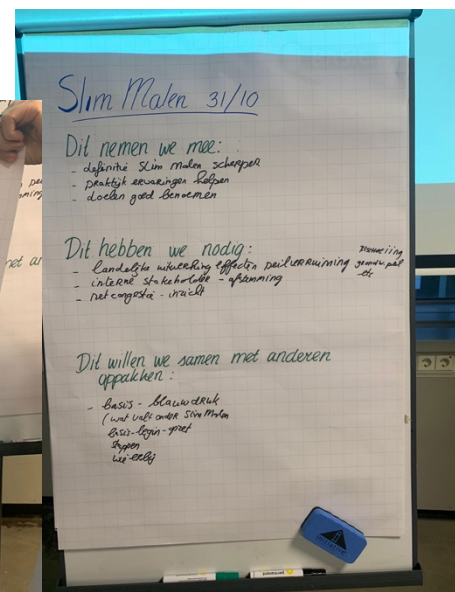 Slim Malen 31/10
Dit nemen we mee:
- definitie Slim malen scherper
- praktijk ervaringen helpen
- doelen goed benoemen
Dit hebben we nodig:
- landelijke uitwerking effecten peilverruiming
- interne stakeholder - afstemming
- netcongestie - inzicht
etc
Dit willen we samen met anderen
oppakken:
- basis - blauwdruk
(wat valt onder Slim Malen
basis-begin-opzet
stappen
wie erbij